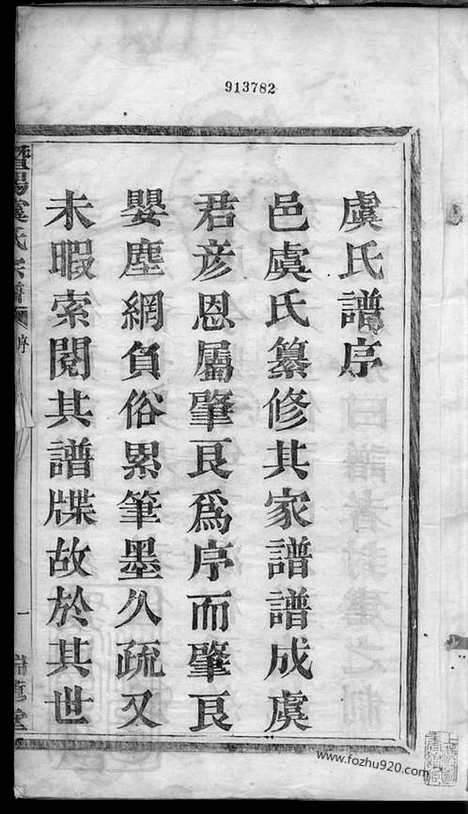 913782
虞氏譜序
邑虞氏纂修其家譜譜成虞
君彦恩屬肇艮爲序而肇艮
嬰塵網負俗累筆墨久疏又
未暇索閱其譜牒故於其世
暨陽虞氏宗譜
序
一
www.fozhu920.com